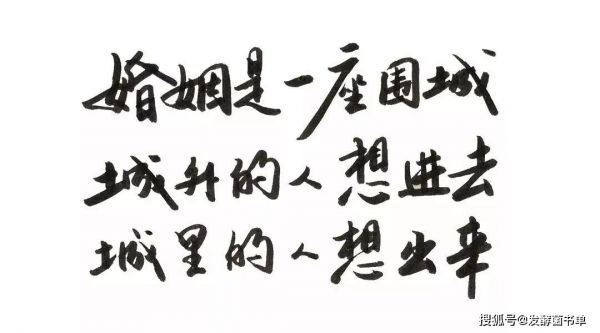 婚姻是一座围城
城外的人想进去
城里的人想出来
搜狐号@发酵菌书单